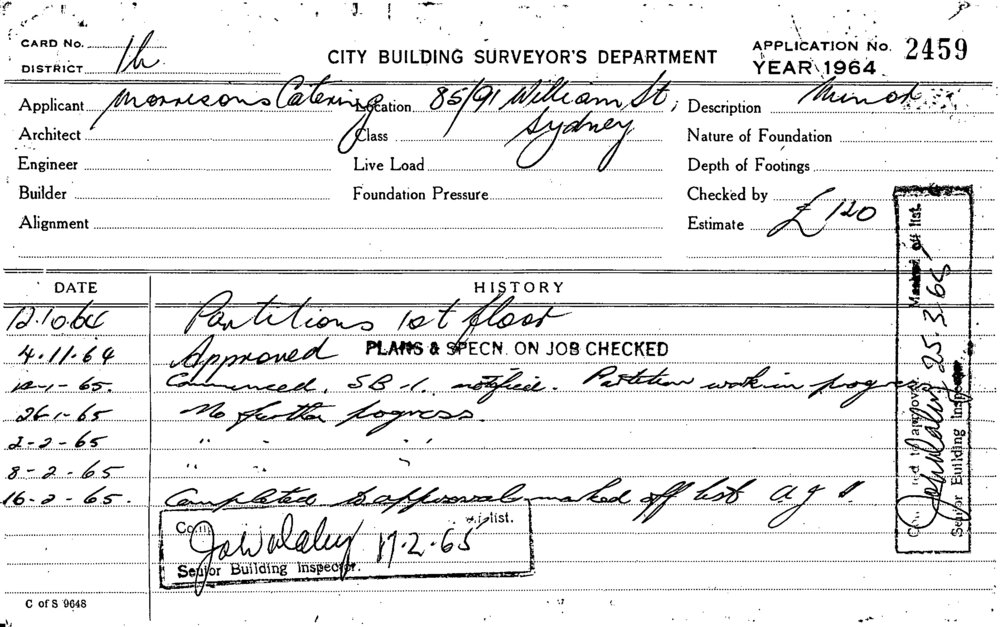 CARD No.
DISTRICT 1h
CITY BUILDING SURVEYOR'S DEPARTMENT
APPLICATION No. 2459
YEAR 1964
Applicant Morrisons Catering Location 85/91 William St, Sydney Description Minor
Architect Class Nature of Foundation
Engineer Live Load Depth of Footings
Builder Foundation Pressure Checked by
Alignment Estimate £120
DATE HISTORY
12.10.64 Partitions 1st floor
4.11.64 Approved PLANS & SPECN. ON JOB CHECKED
-1-65. Commenced. SB-1. notified. Partition work in progress
26-1-65 No further progress.
2-2-65 " " "
8-2-65 " " "
16-2-65. Completed to approval marked off list
list.
17-2-65
Senior Building Inspector.
to approval Marked off list.
25-3-65
Senior Building Inspector
C of S 9648